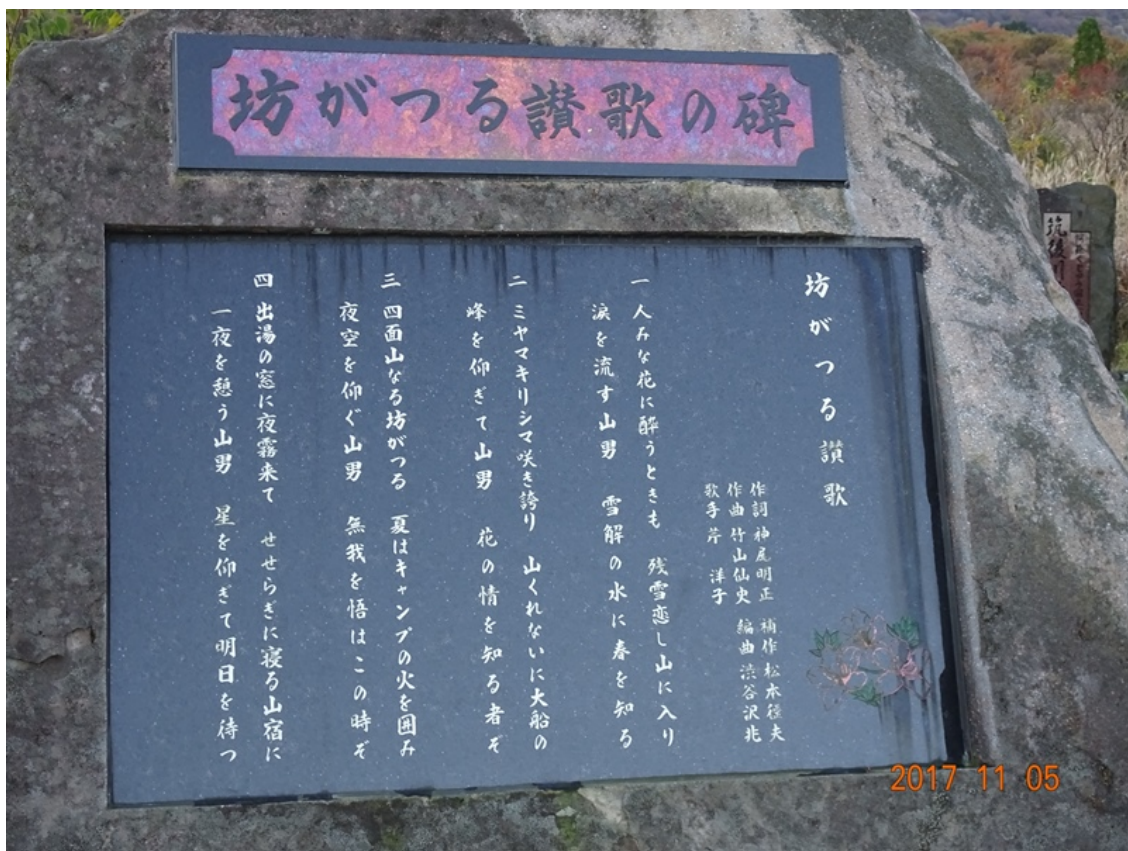 坊がつる讃歌の碑
坊がつる讃歌
作詞 神尾明正 補作 松本徰夫
作曲 竹山仙史 編曲 渋谷沢兆
歌手 芹 洋子
一 人みな花に酔うときも 残雪恋し山に入り
涙を流す山男 雪解の水に春を知る
二 ミヤマキリシマ咲き誇り 山くれないに大船の
峰を仰ぎて山男 花の情を知る者ぞ
三 四面山なる坊がつる 夏はキャンプの火を囲み
夜空を仰ぐ山男 無我を悟はこの時ぞ
四 出湯の窓に夜霧来て せせらぎに寝る山宿に
一夜を憩う山男 星を仰ぎて明日を待つ
筑後川
2017 11 05